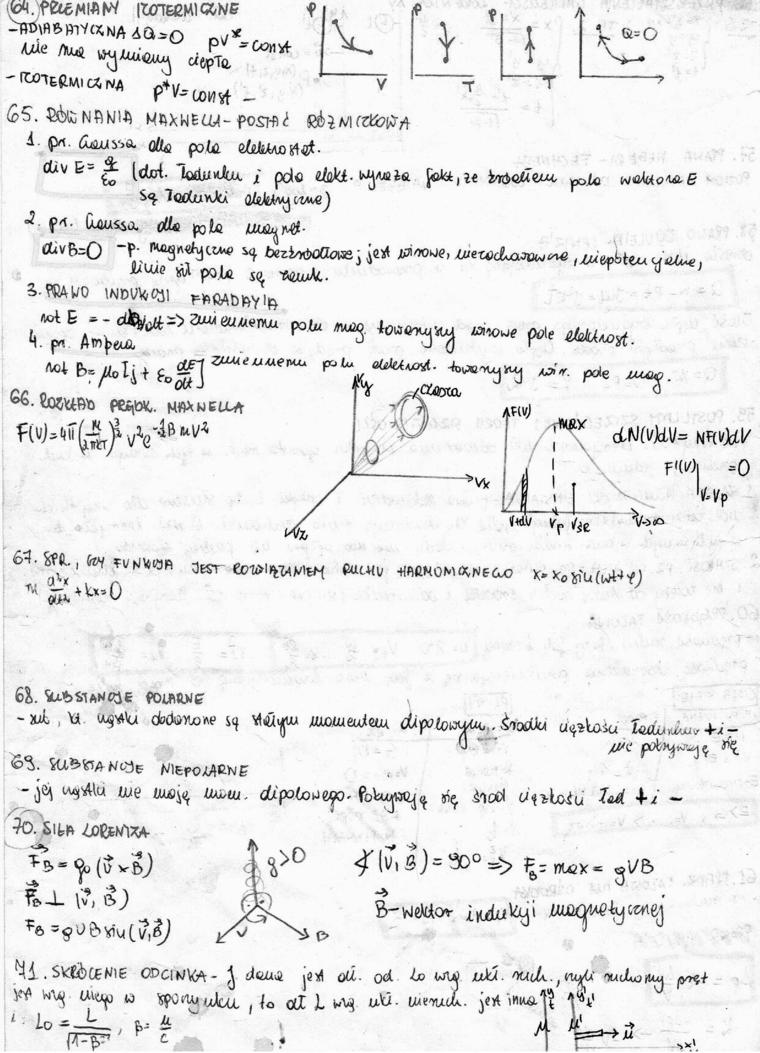 64. PRZEMIANY IZOTERMICZNE
- ADIABATYCZNA ΔQ=0 pV^æ=const
nie ma wymiany ciepła
- IZOTERMICZNA p*V=const -
P V P T P T Q=0
65. RÓWNANIA MAXWELLA - POSTAĆ RÓŻNICZKOWA
1. pr. Gaussa dla pola elektrostat.
div E = q/ε₀ (dot. ładunku i pola elekt. wyraża fakt, że źródłem pola wektora E
są ładunki elektryczne)
2. pr. Gaussa dla pola magnet.
div B=0 - p. magnetyczne są bezźródłowe, jest wirowe, niezachowawcze, niepotencjalne,
linie sił pola są zamk.
3. PRAWO INDUKCJI FARADAYIA
rot E = - dB/dt => zmiennemu polu mag. towarzyszy wirowe pole elektrost.
4. pr. Ampera
rot B = μ₀[j + ε₀ dE/dt] zmiennemu polu elektrost. towarzyszy wir. pole mag.
66. ROZKŁAD PRĘDK. MAXWELLA
F(V)=4π( )^3/2 V²e^-1/2 B mV²
Vy cząstka Vx Vz
F(V) max V+dV Vp VŚR V→∞
dN(V)dV= NF(V)dV
F'(V)|V=Vp =0
67. SPR., CZY FUNKCJA JEST ROZWIĄZANIEM RUCHU HARMONICZNEGO x= x₀ sin(ωt+φ)
m d²x/dt² + kx=0
68. SUBSTANCJE POLARNE
- sub., kt. cząstki obdarzone są stałym momentem dipolowym. Środki ciężkości ładunków + i -
nie pokrywają się
69. SUBSTANCJE NIEPOLARNE
- jej cząstki nie mają mom. dipolowego. Pokrywają się środ ciężkości ład + i -
70. SIŁA LORENTZA
F_B = q₀(V × B) q>0 ∢(V,B) = 90° => F_B = max = qVB
F_B ⊥ (V,B)
B - wektor indukcji magnetycznej
F_B = qVB sin(V,B) V B
71. SKRÓCENIE ODCINKA - J dana jest dł. od. Lo wzg. ukł. ruch., czyli ruchomy pręt
jest wzg. niego w spoczynku, to dł L wzg. ukł. nieruch. jest inna
i: Lo = L/√1-B², B= u/c